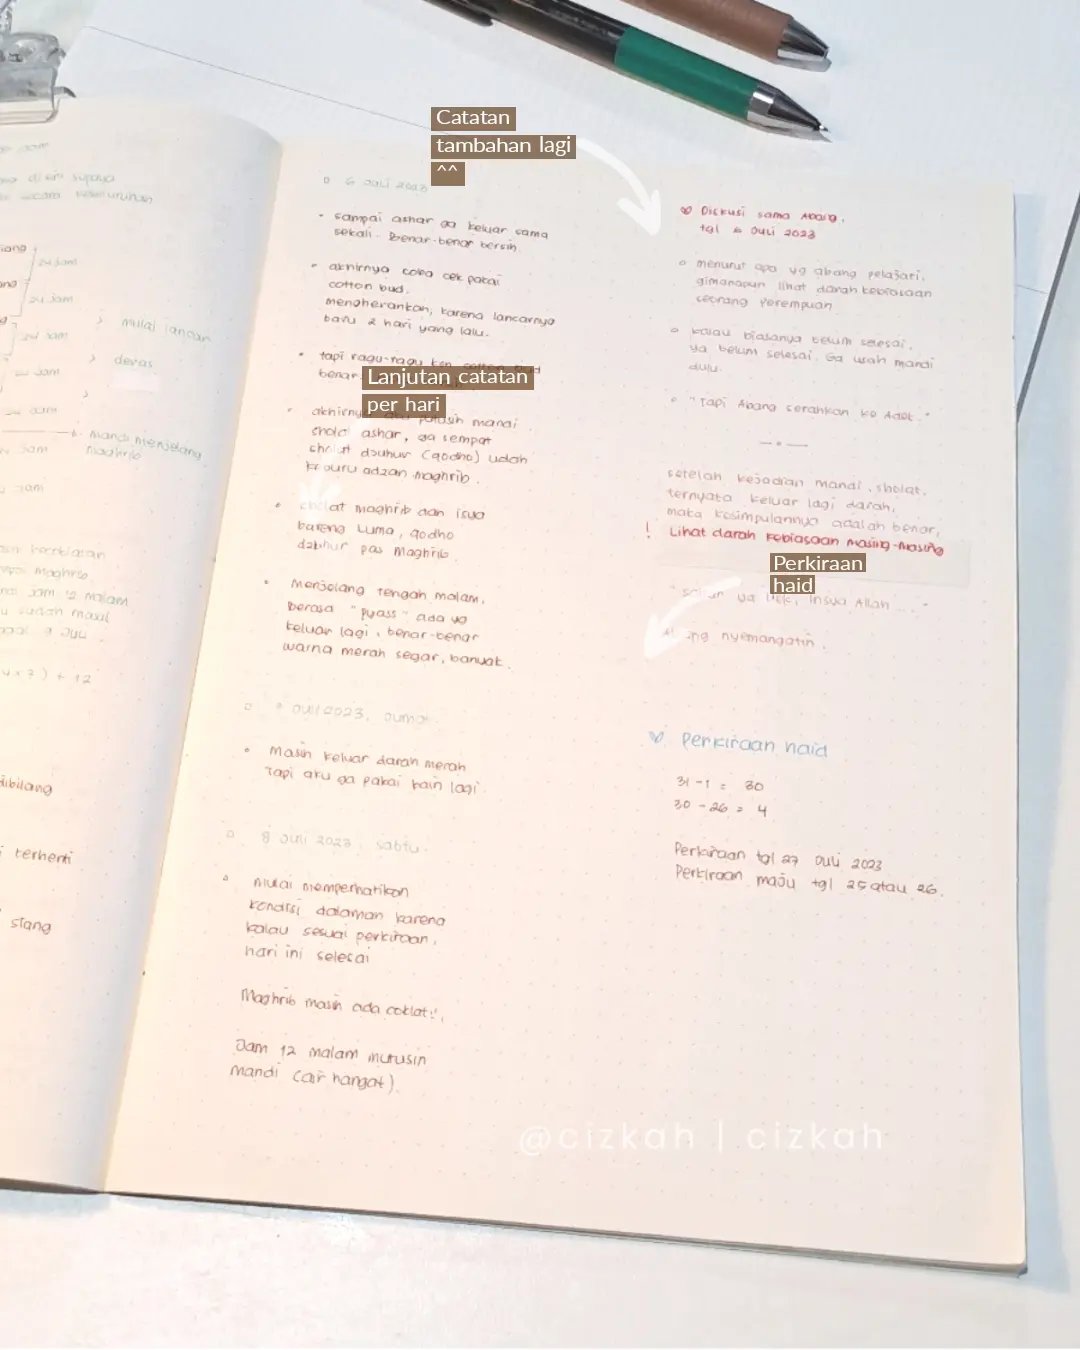 Catatan
tambahan lagi
^^
6 Juli 2023
sampai ashar ga keluar sama
sekali. Benar-benar bersih.
akhirnya coba cek pakai
cotton bud.
mengherankan, karena lancarnya
baru 2 hari yang lalu.
tapi ragu-ragu krn cotton bud
benar
Lanjutan catatan
per hari
akhirnya aku putusin mandi.
sholat ashar, ga sempat
sholat dzuhur (qodho) udah
keburu adzan maghrib.
sholat maghrib dan isya
bareng Luma, qodho
dzuhur pas Maghrib
Menjelang tengah malam,
berasa "pyass" ada yg
keluar lagi, benar-benar
warna merah segar, banyak.
7 Juli 2023, Jumat.
Masih keluar darah merah
Tapi aku ga pakai kain lagi.
8 Juli 2023, sabtu.
Mulai memperhatikan
kondisi dalaman karena
kalau sesuai perkiraan,
hari ini selesai
Maghrib masih ada coklat!!,
Jam 12 malam mutusin
mandi (air hangat).
Diskusi sama Abang,
tgl 6 Juli 2023
menurut apa yg abang pelajari,
gimanapun lihat darah kebiasaan
seorang perempuan
kalau biasanya belum selesai,
ya belum selesai. Ga usah mandi
dulu.
"Tapi Abang serahkan ke Adek."
setelah kejadian mandi, sholat,
ternyata keluar lagi darah,
maka kesimpulannya adalah benar,
! Lihat darah kebiasaan masing-masing
Perkiraan
haid
ya insya Allah ..."
nyemangatin.
Perkiraan haid
31 - 1 = 30
30 - 26 = 4
Perkiraan tgl 27 Juli 2023
Perkiraan maju tgl 25 atau 26.
mulai lancar
deras
24 jam
24 jam
24 jam
mandi menjelang
maghrib
supaya
secara keseluruhan
maghrib
jam 12 malam
sudah masuk
9 Juli
dibilang
terhenti
siang
@cizkah | cizkah